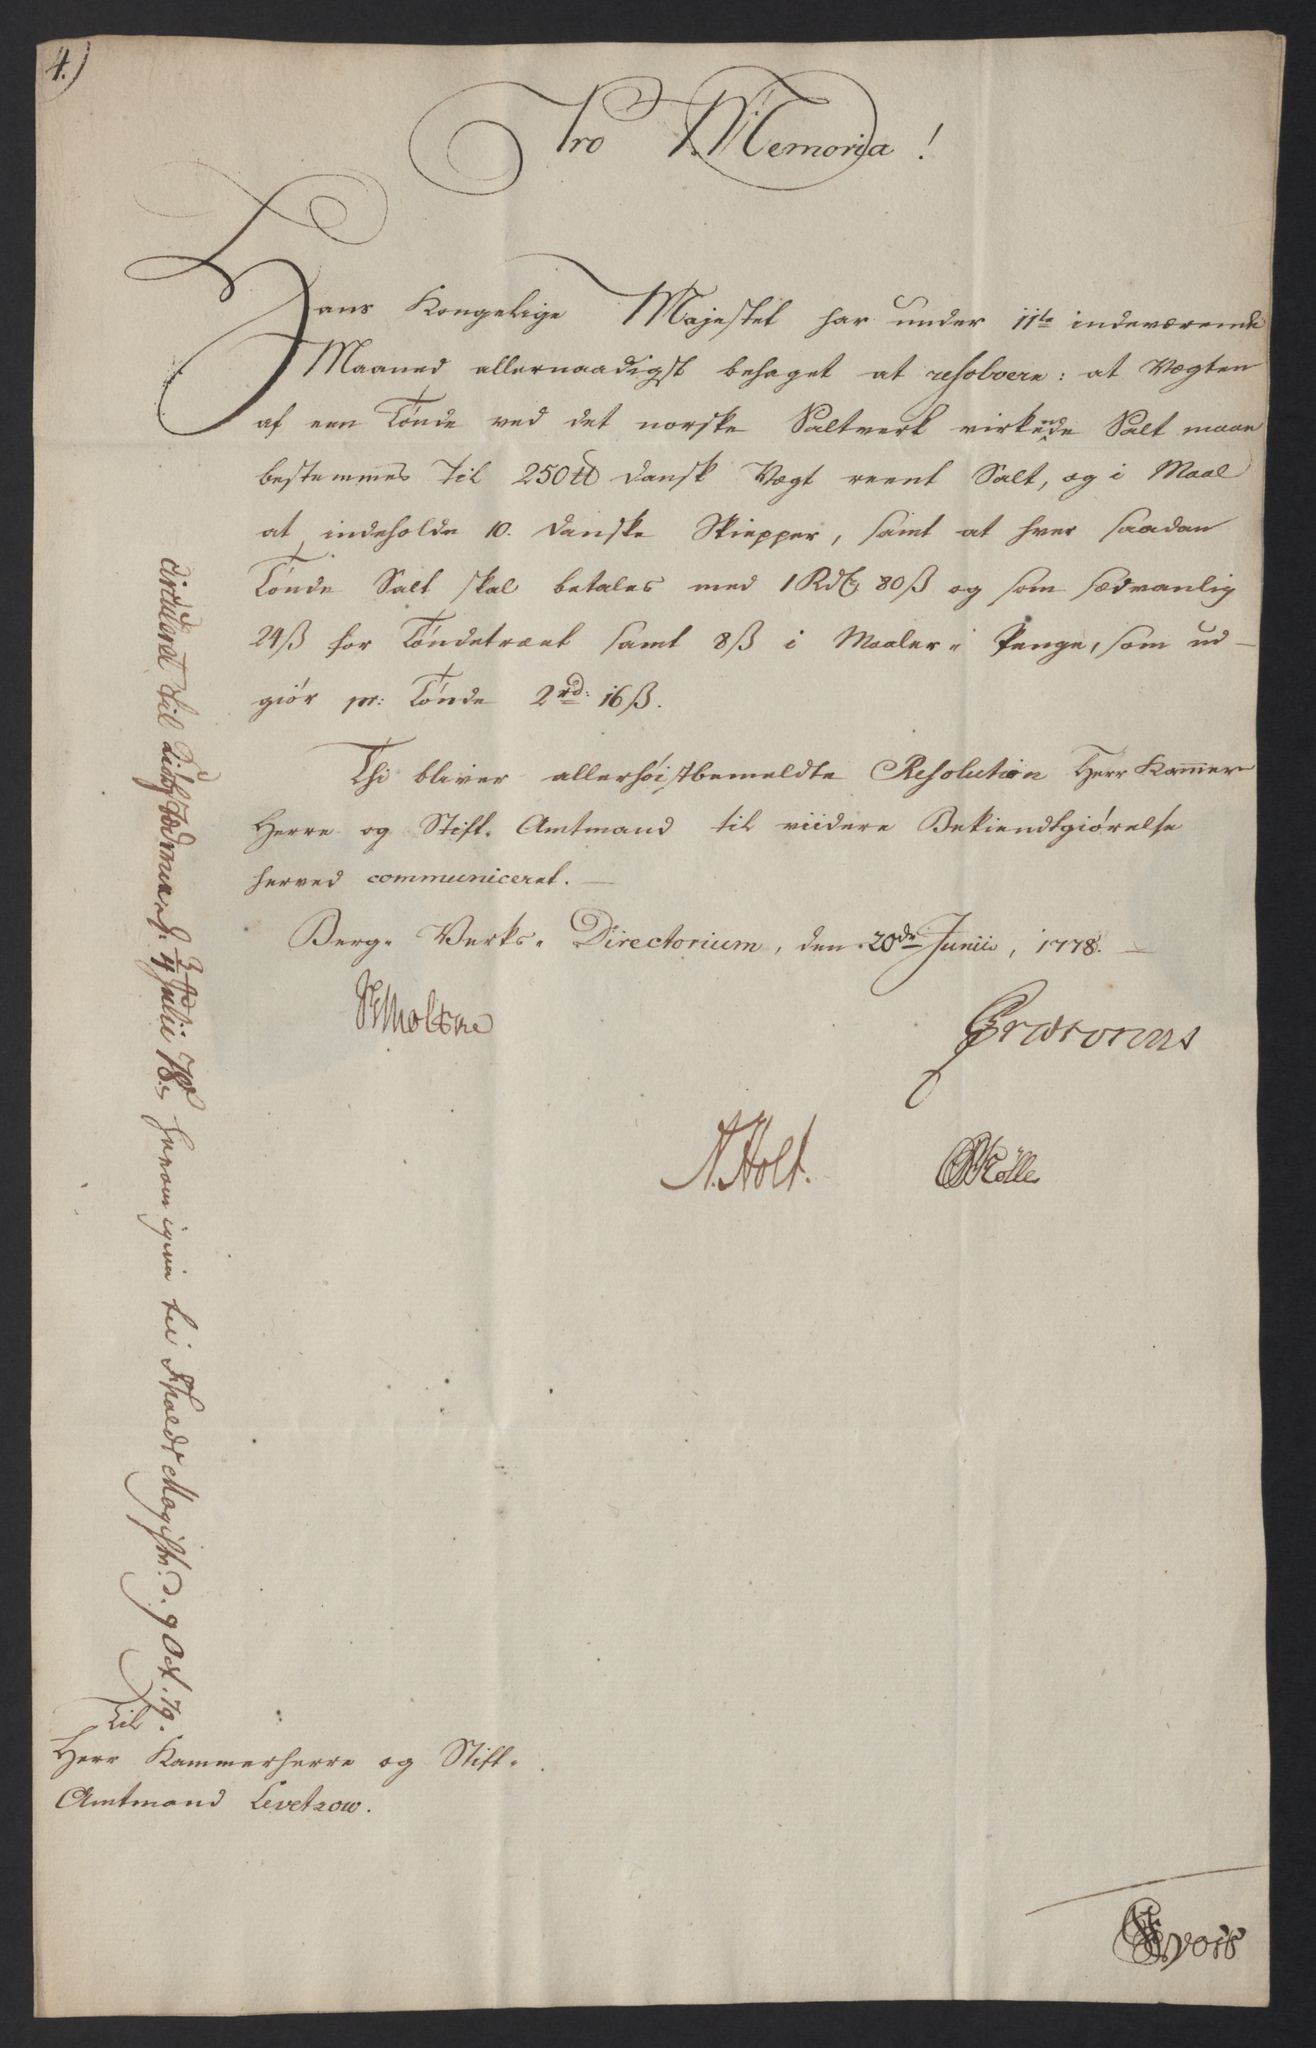 4.)
Pro Memoria!
Hans Kongelige Majestet har under 11te indeværende
Maaned allernaadigst behaget at resolvere: at Vægten
af een Tønde ved det norske Saltverk virkende Salt maae
bestemmes til 250 ℔ Dansk Vægt reent Salt, og i Maal
at indeholde 10. Danske Skiepper, samt at hver saadan
Tønde Salt skal betales med 1 Rd 80 ß og som sædvanlig
24 ß for Tøndetræet samt 8 ß i Maaler-Penge, som ud-
giør pr: Tønde 2 rd: 16 ß.
Thi bliver allerhøistbemeldte Resolution Herr Kammer-
Herre og Stift-Amtmand til viidere Bekiendtgiørelse
herved communiceret.
Berg-Verks-Directorium, den 20de Junii, 1778.
N. Holt.
Til
Herr Kammerherre og Stift-
Amtmand Levetzow.